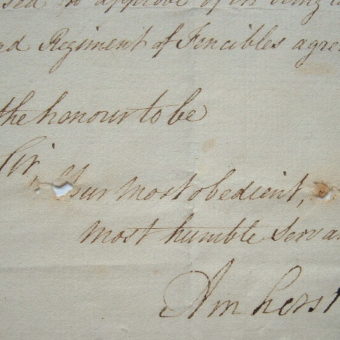 to approve of its being
Regiment of Fencibles agre
the honour to be
Sir,
Your most obedient,
most humble Serva
Amherst